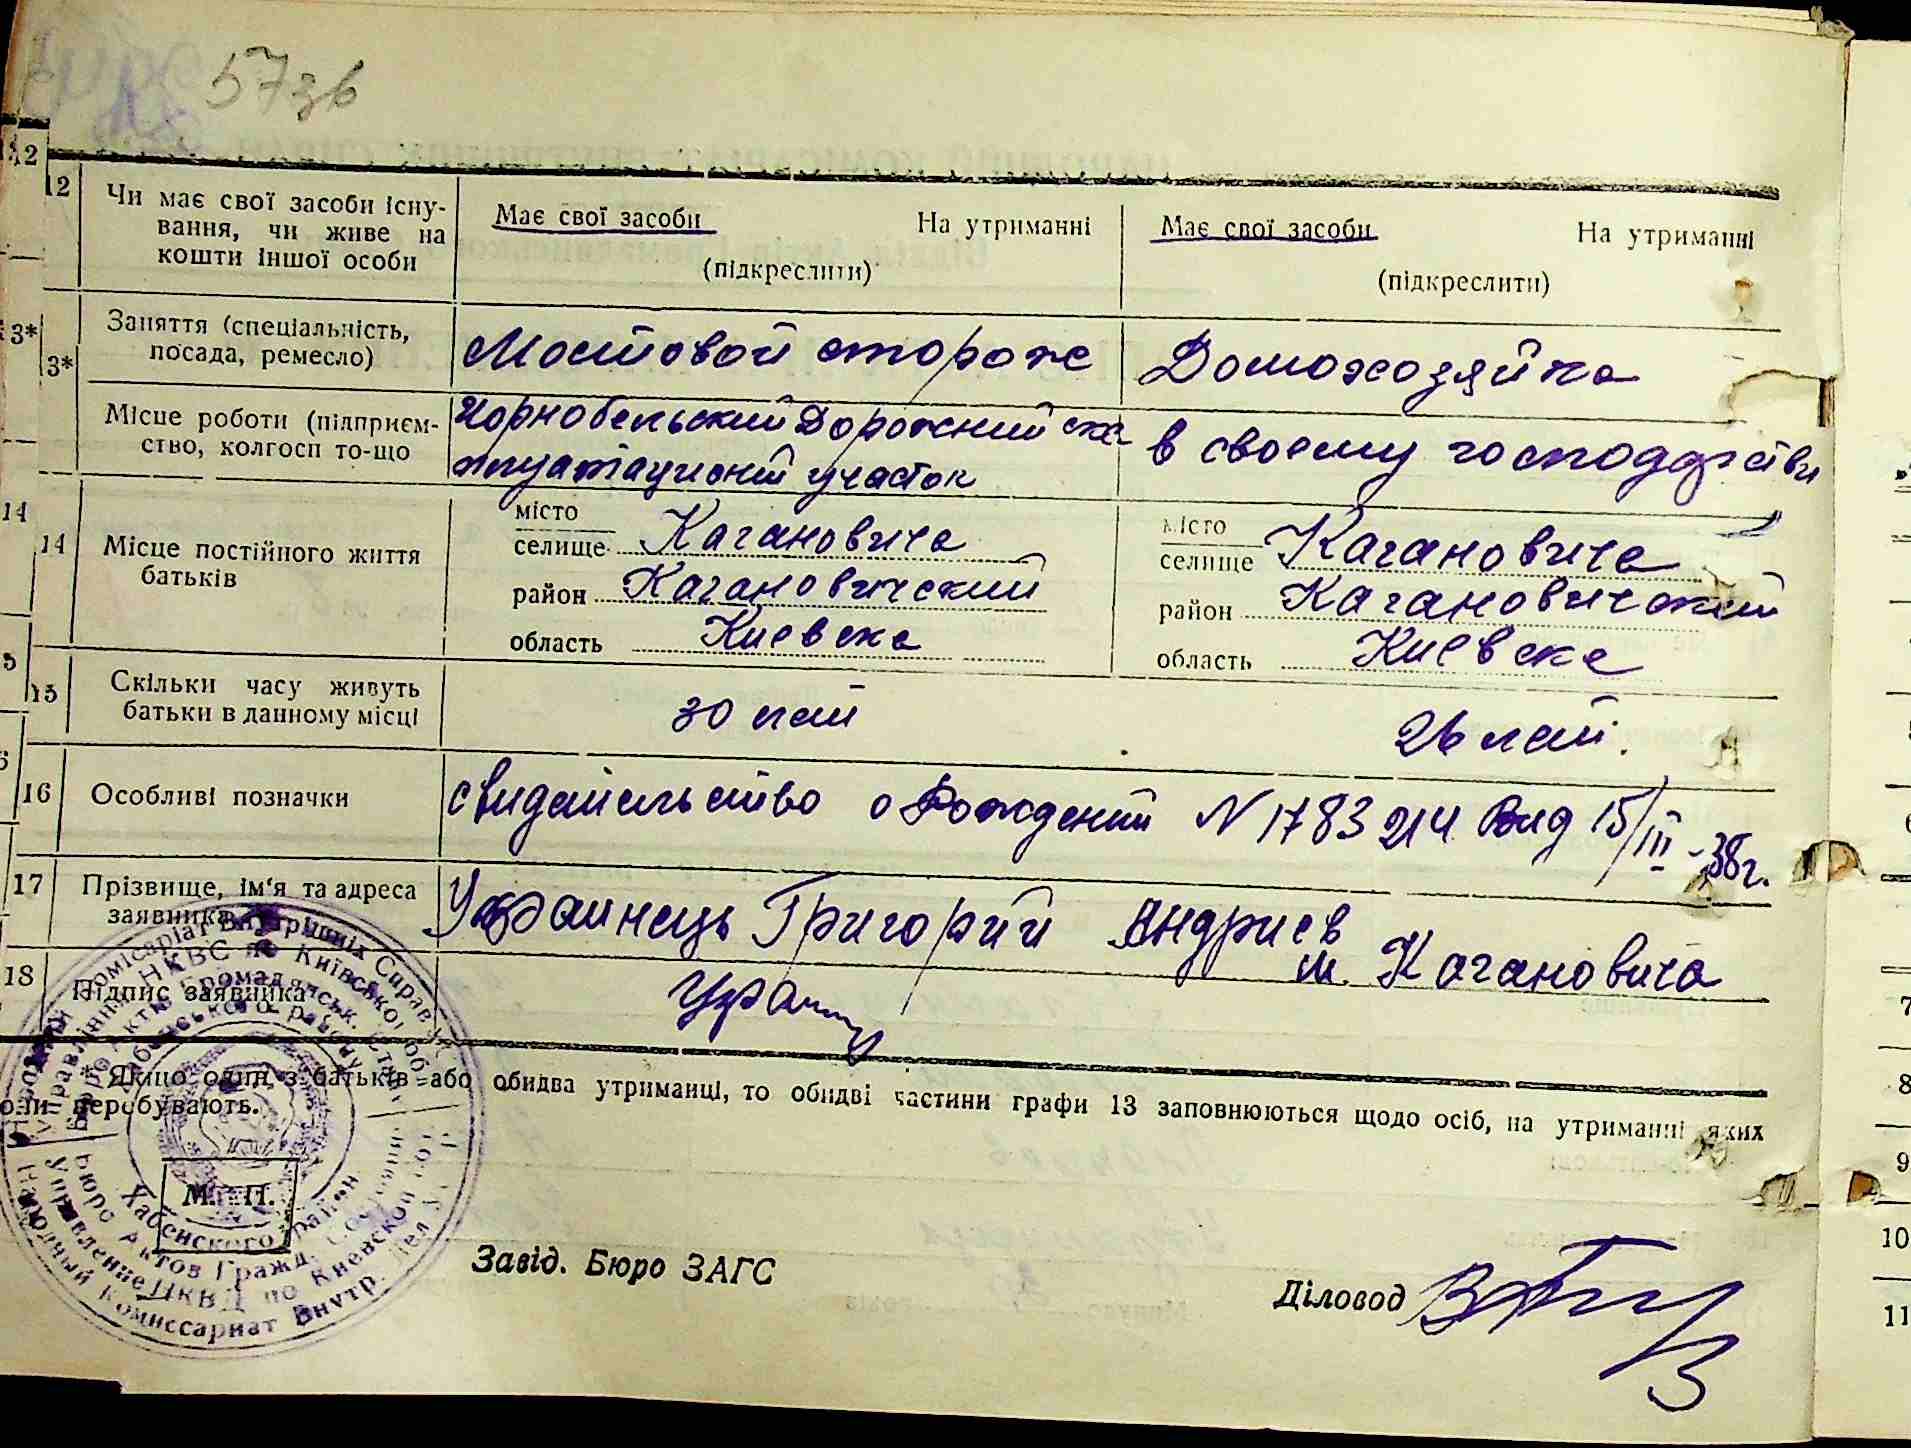 57зв
12 Чи має свої засоби існу-
вання, чи живе на
кошти іншої особи
Має свої засоби На утриманні
(підкреслити)
Має свої засоби На утриманні
(підкреслити)
3* Заняття (спеціальність,
посада, ремесло)
Мостовой сторож
Домохозяйка
Місце роботи (підприєм-
ство, колгосп то-що
Чорнобельский Дорожний екс
плуатационій участок
в своему господарстви
14 Місце постійного життя
батьків
місто
селище Кагановича
район Кагановичский
область Киевска
місто
селище Кагановича
район Кагановичский
область Киевска
15 Скільки часу живуть
батьки в данному місці
30 лет
26 лет.
16 Особливі позначки
свидетельство о Рождении N 1783214 Вид 15/III-38г.
17 Прізвище, ім'я та адреса
заявника
Украинець Григорий Андриев
м. Кагановича
18 Підпис заявника
* Якщо один з батьків або обидва утриманці, то обидві частини графи 13 заповнюються щодо осіб, на утриманні яких
вони перебувають.
М. П.
Хабенского район
Бюро Актов Гражд. Состояния
Управление НКВД по Киевской
Народный Комиссариат Внутр. Дел
Завід. Бюро ЗАГС
Діловод
7
8
9
10
11